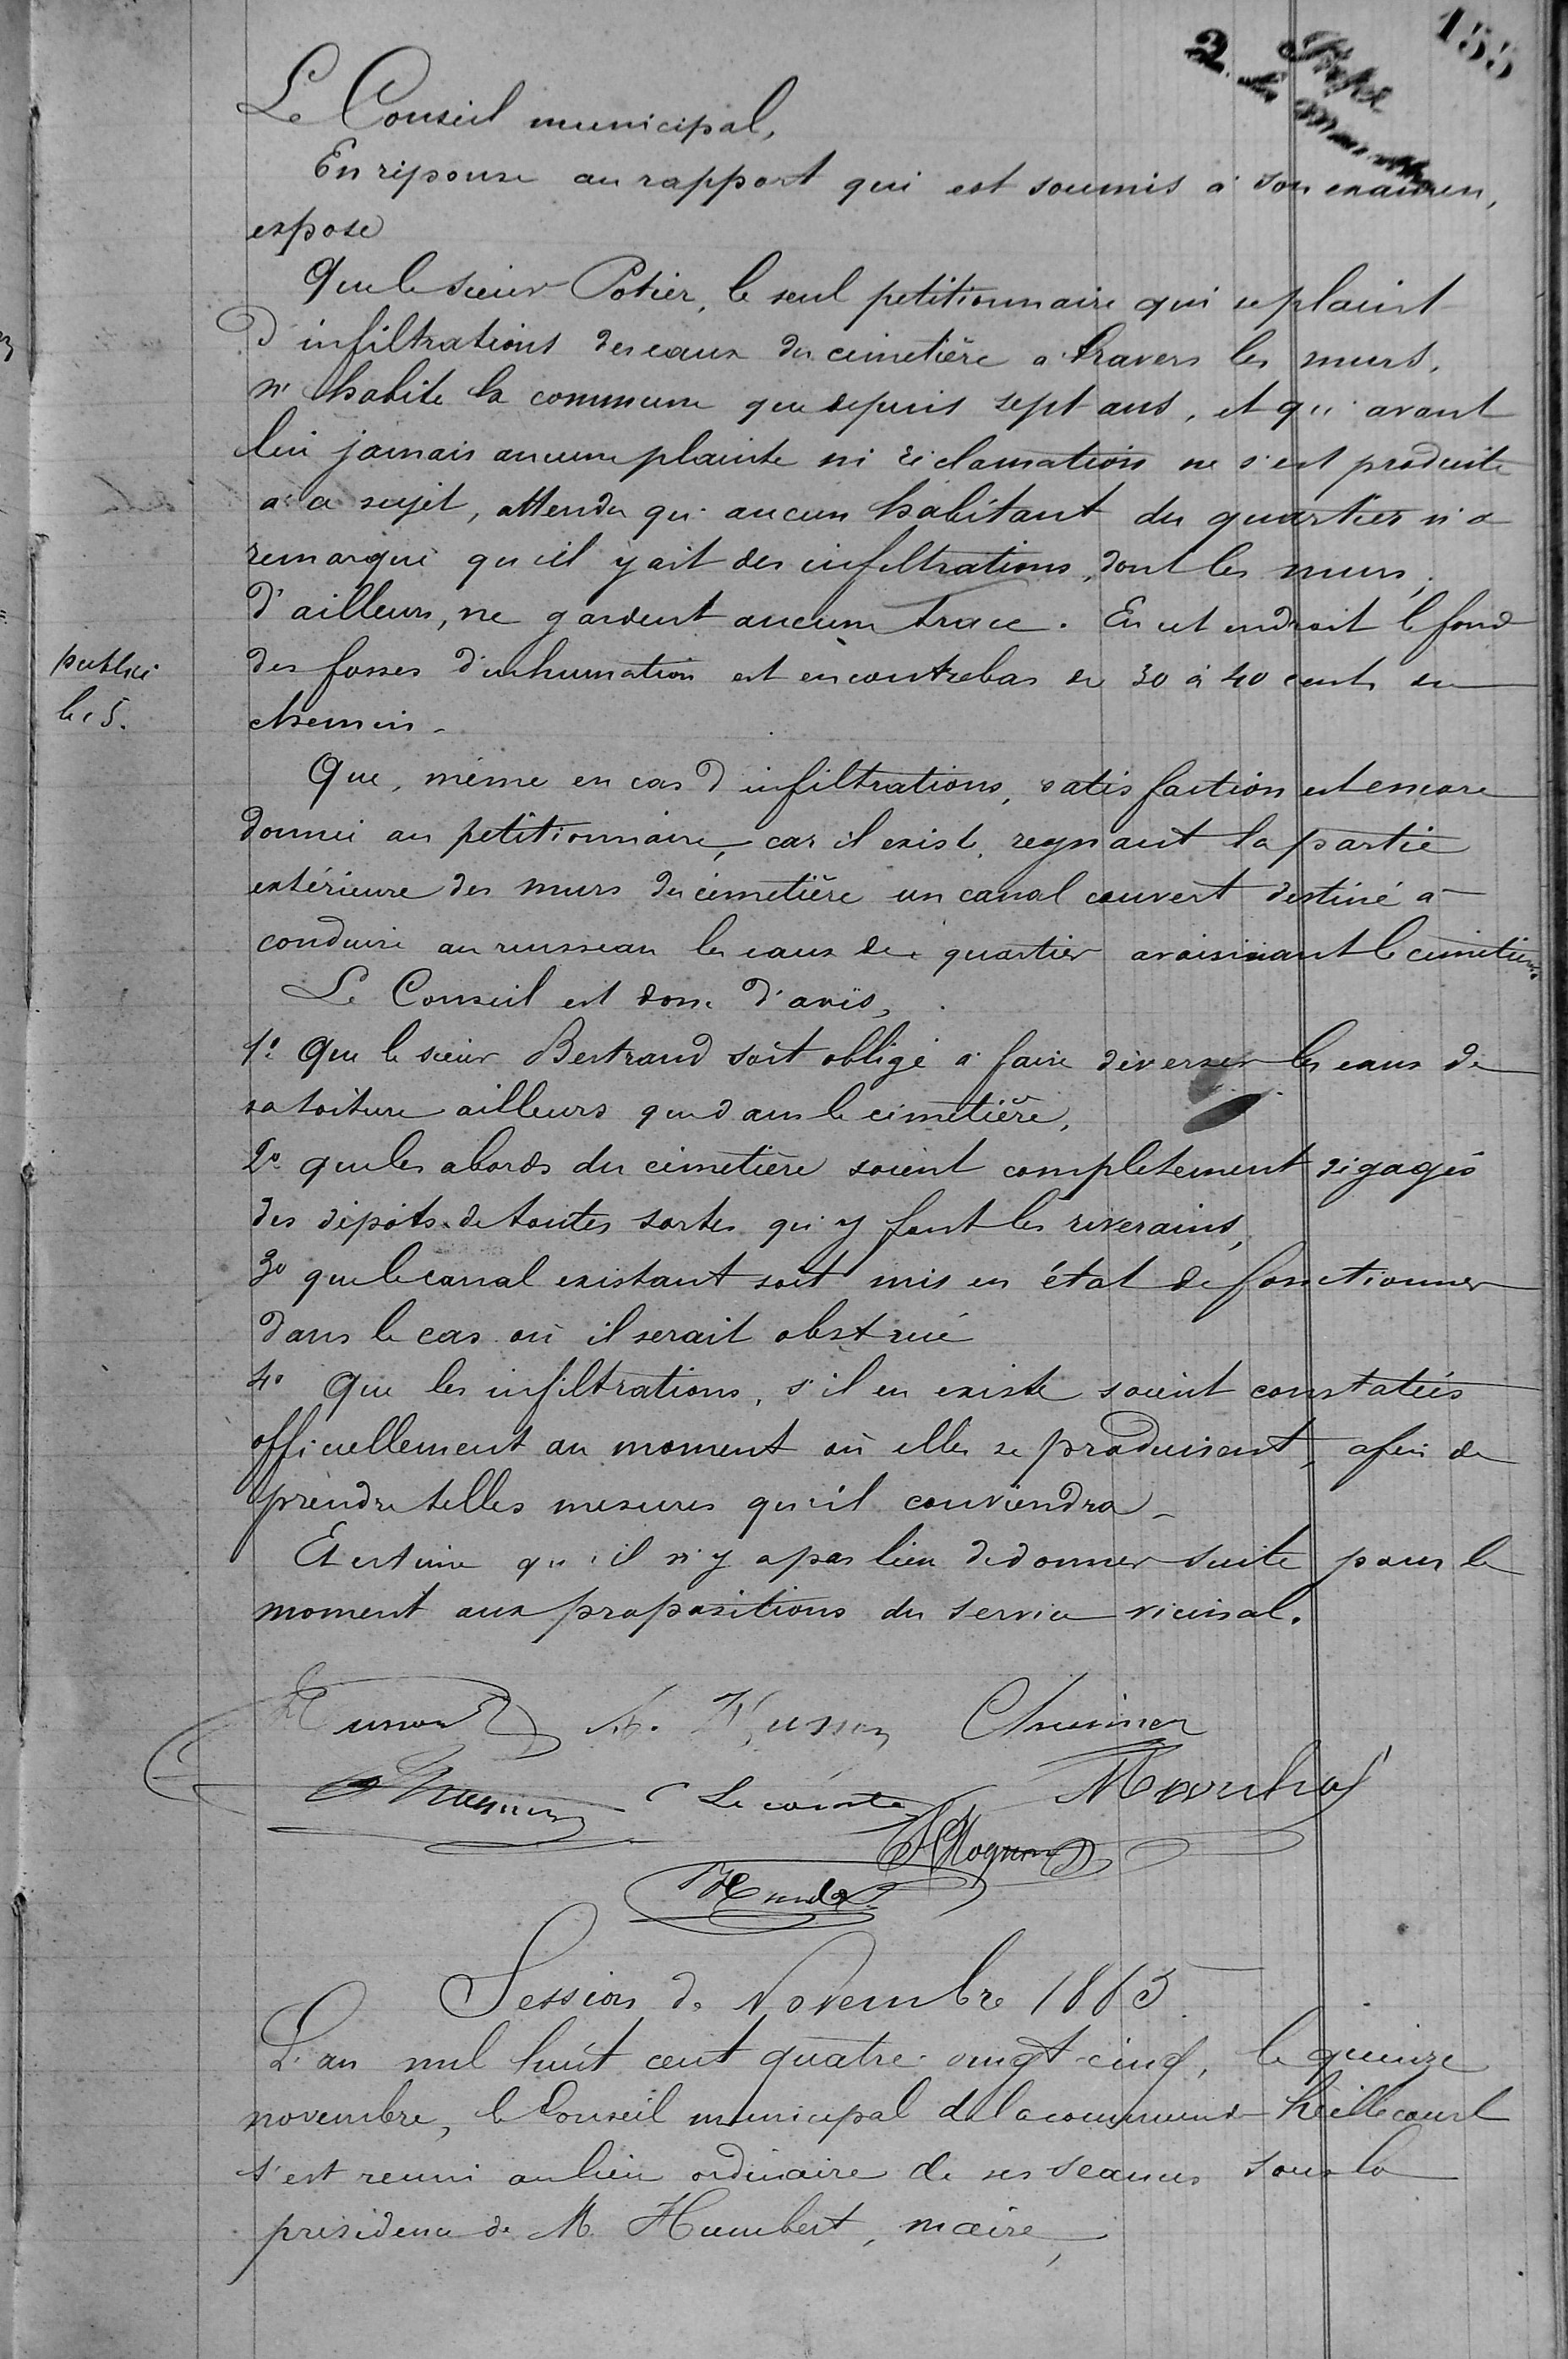 155
2
Le Conseil municipal,
En réponse au rapport qui est soumis à son examen,
expose
Que le sieur Potier, le seul petitionnaire qui se plaint
d'infiltrations des eaux du cimetière à travers les murs,
n'habite la commune que depuis sept ans, et qu'avant
lui jamais aucune plainte ni réclamation ne s'est produite
à ce sujet, attendu qu'aucun habitant du quartier n'a
remarqué qu'il y ait des infiltrations, dont les murs,
d'ailleurs, ne gardent aucune trace. En cet endroit le fond
des fosses d'inhumation est en contrebas de 30 à 40 cent. du
chemin.
publié
le 15.
Que, même en cas d'infiltrations, satisfaction est encore
donnée au petitionnaire, car il existe, regnant la partie
extérieure des murs du cimetière un canal couvert destiné à
conduire au ruisseau les eaux du quartier avoisinant le cimetière
Le Conseil est donc d'avis,
1° Que le sieur Bertrand soit obligé à faire déverser les eaux de
sa toiture ailleurs que dans le cimetière,
2° que les abords du cimetière soient complètement dégagés
des dépôts de toutes sortes qu'y font les riverains,
3° que le canal existant soit mis en état de fonctionner
dans le cas où il serait obstrué
4° Que les infiltrations, s'il en existe soient constatées
officiellement au moment où elles se produisent, afin de
prendre telles mesures qu'il conviendra.
Et estime qu'il n'y a pas lieu de donner suite pour le
moment aux propositions du service vicinal.
Lecomte
Session de Novembre 1885
L'an mil huit cent quatre-vingt-cinq, le quinze
novembre, le Conseil municipal de la commune de Heillecourt
s'est reuni au lieu ordinaire de ses seances sous la
présidence de M. Humbert, maire,